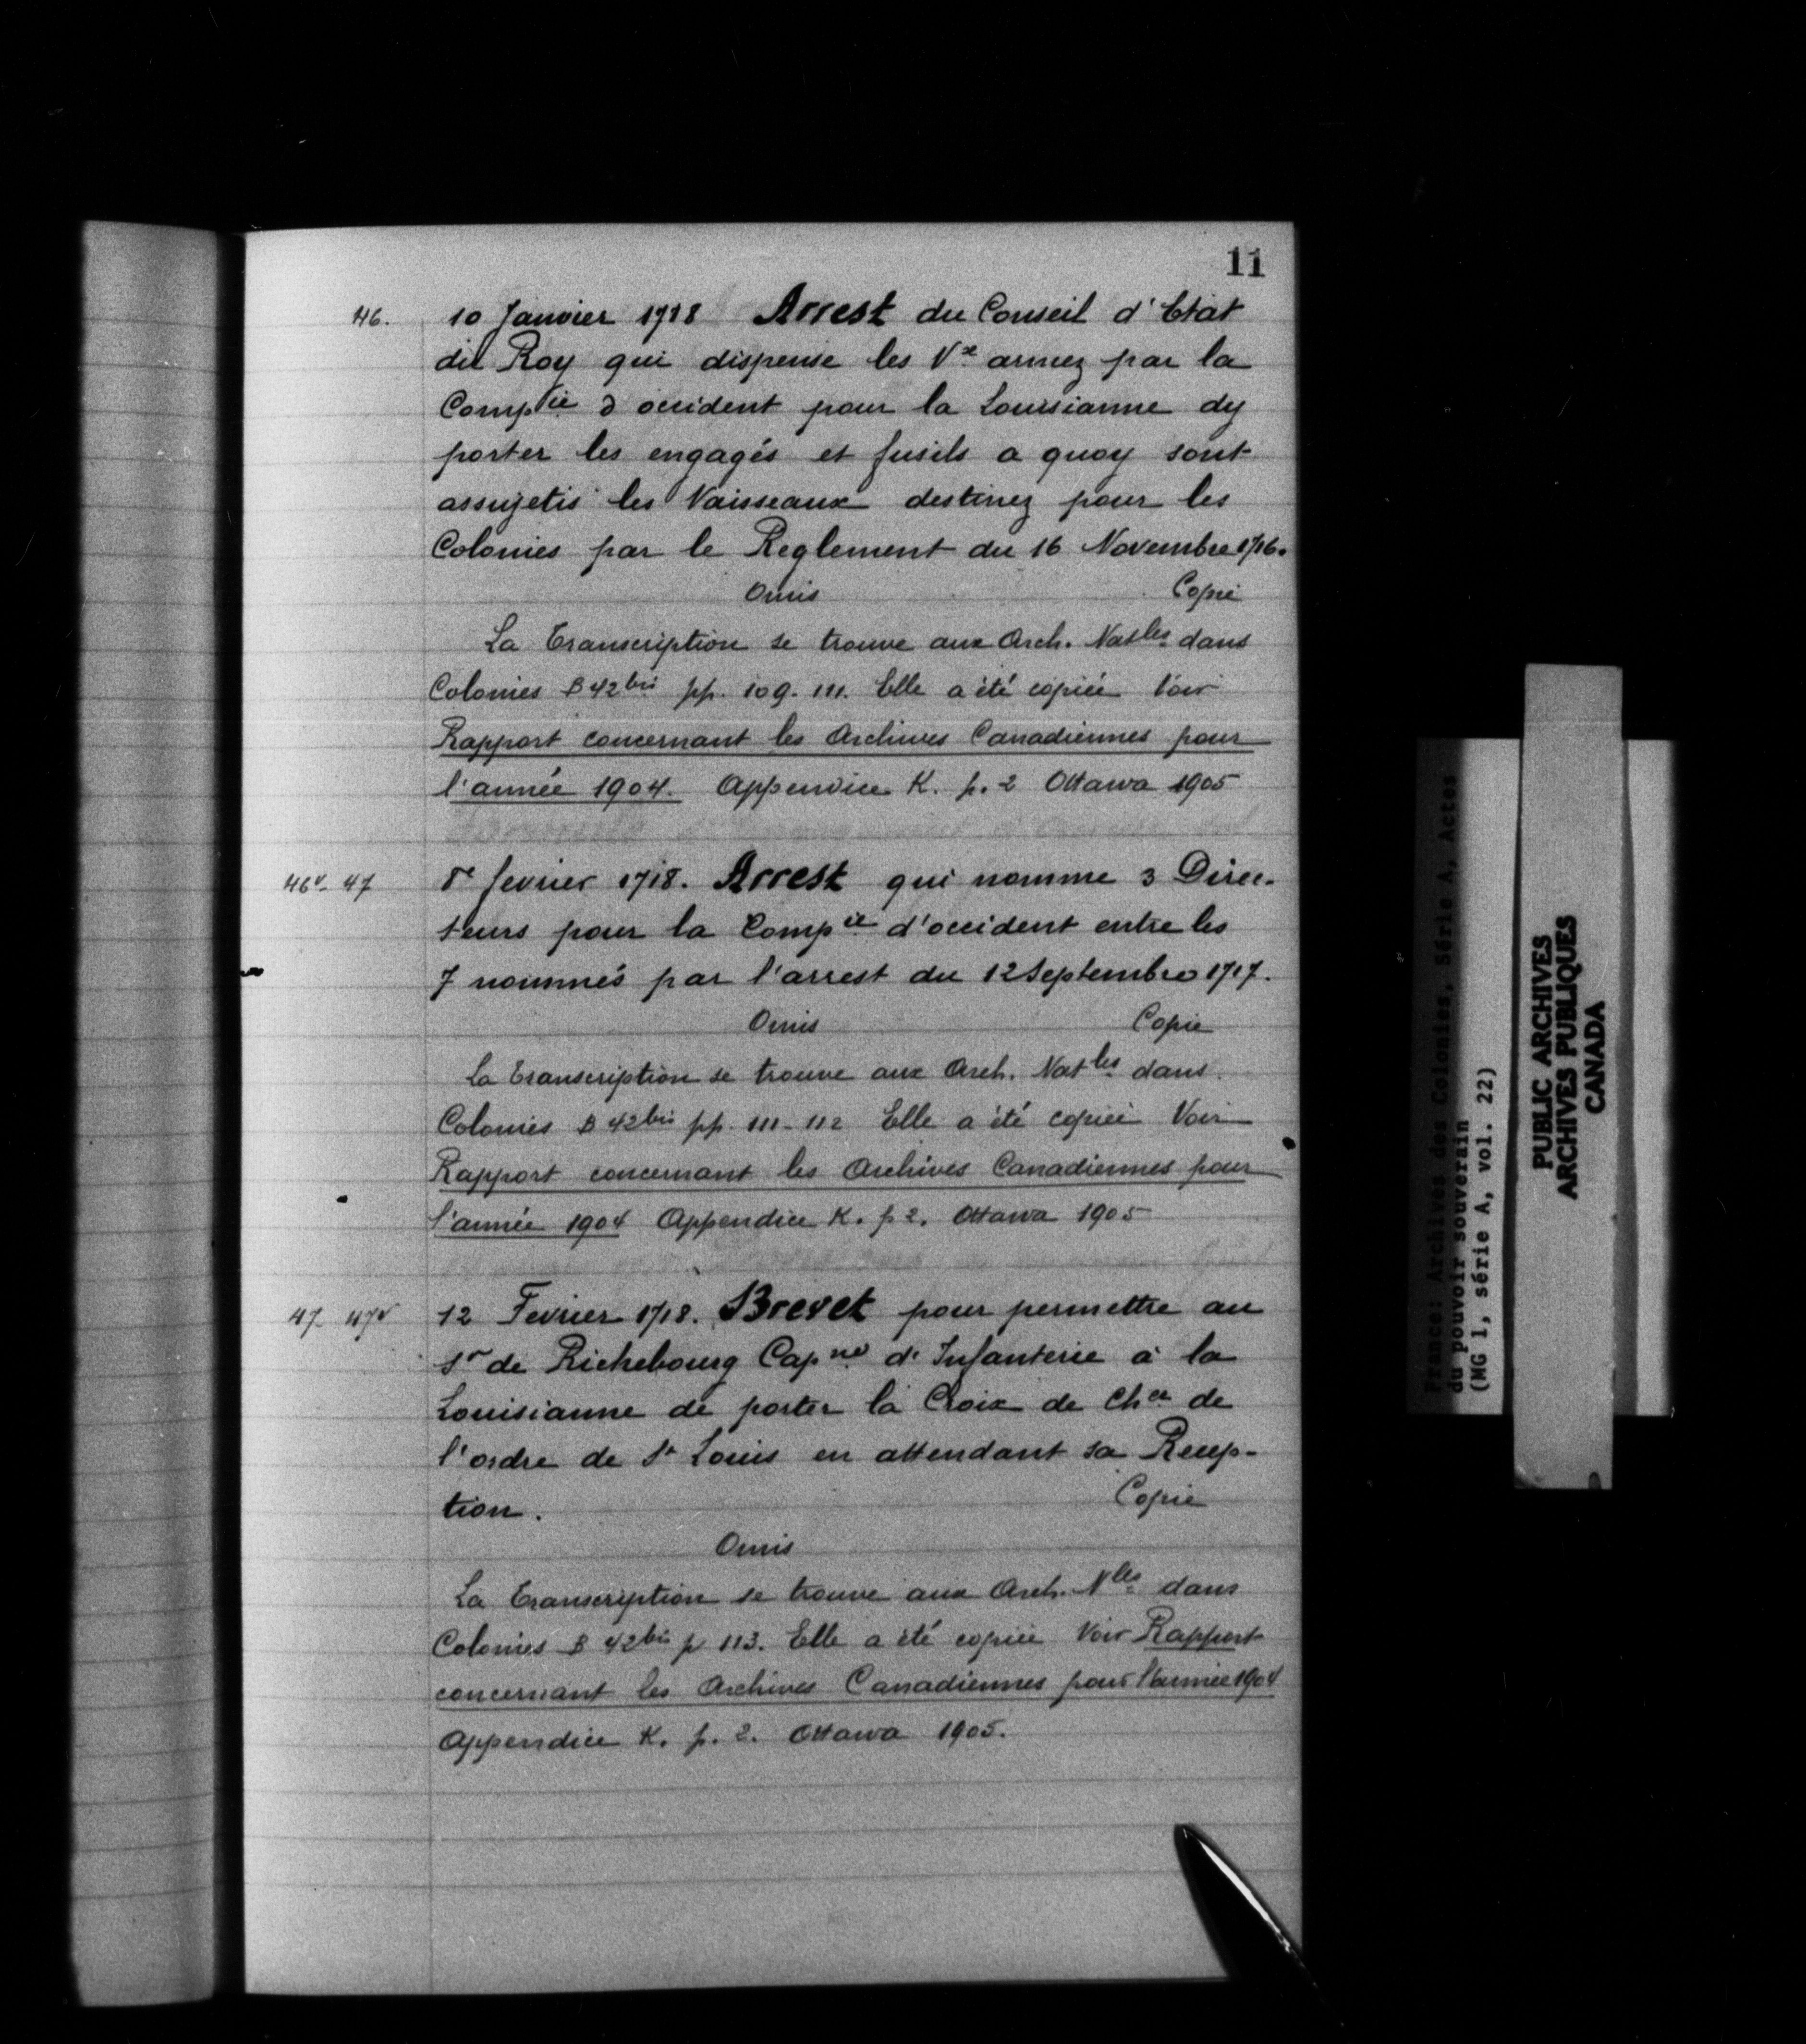 11
46. 10 Janvier 1718 Arrest du Conseil d'Etat
du Roy qui dispense les Vx armez par la
Compie d occident pour la Louisianne dy
porter les engagés et fusils a quoy sont
assujetis les Vaisseaux destinez pour les
Colonies par le Reglement du 16 Novembre 1716.
Omis Copié
La Transcription se trouve aux Arch. Natles dans
Colonies B 42bis pp. 109-111. Elle a été copiée Voir
Rapport concernant les Archives Canadiennes pour
l'année 1904. Appendice K. p. 2 Ottawa 1905
46v-47 8e fevrier 1718. Arrest qui nomme 3 Direc-
teurs pour la Compie d'occident entre les
7 nommés par l'arrest du 12 Septembre 1717.
Omis Copie
La Transcription se trouve aux Arch. Natles dans
Colonies B 42bis pp. 111-112 Elle a été copiée Voir
Rapport concernant les Archives Canadiennes pour
l'année 1904 Appendice K. p 2. Ottawa 1905
47-47v 12 Fevrier 1718. Brevet pour permettre au
Sr de Richebourg Capne d'Infanterie à la
Louisianne de porter la Croix de Cher de
l'ordre de St Louis en attendant sa Recep-
tion. Copie
Omis
La Transcription se trouve aux Arch. Nles dans
Colonies B 42bis p 113. Elle a été copiée Voir Rapport
concernant les Archives Canadiennes pour l'année 1904
Appendice K. p. 2. Ottawa 1905.
France: Archives des Colonies, Série A, Actes
du pouvoir souverain
(MG 1, série A, vol. 22)
PUBLIC ARCHIVES
ARCHIVES PUBLIQUES
CANADA